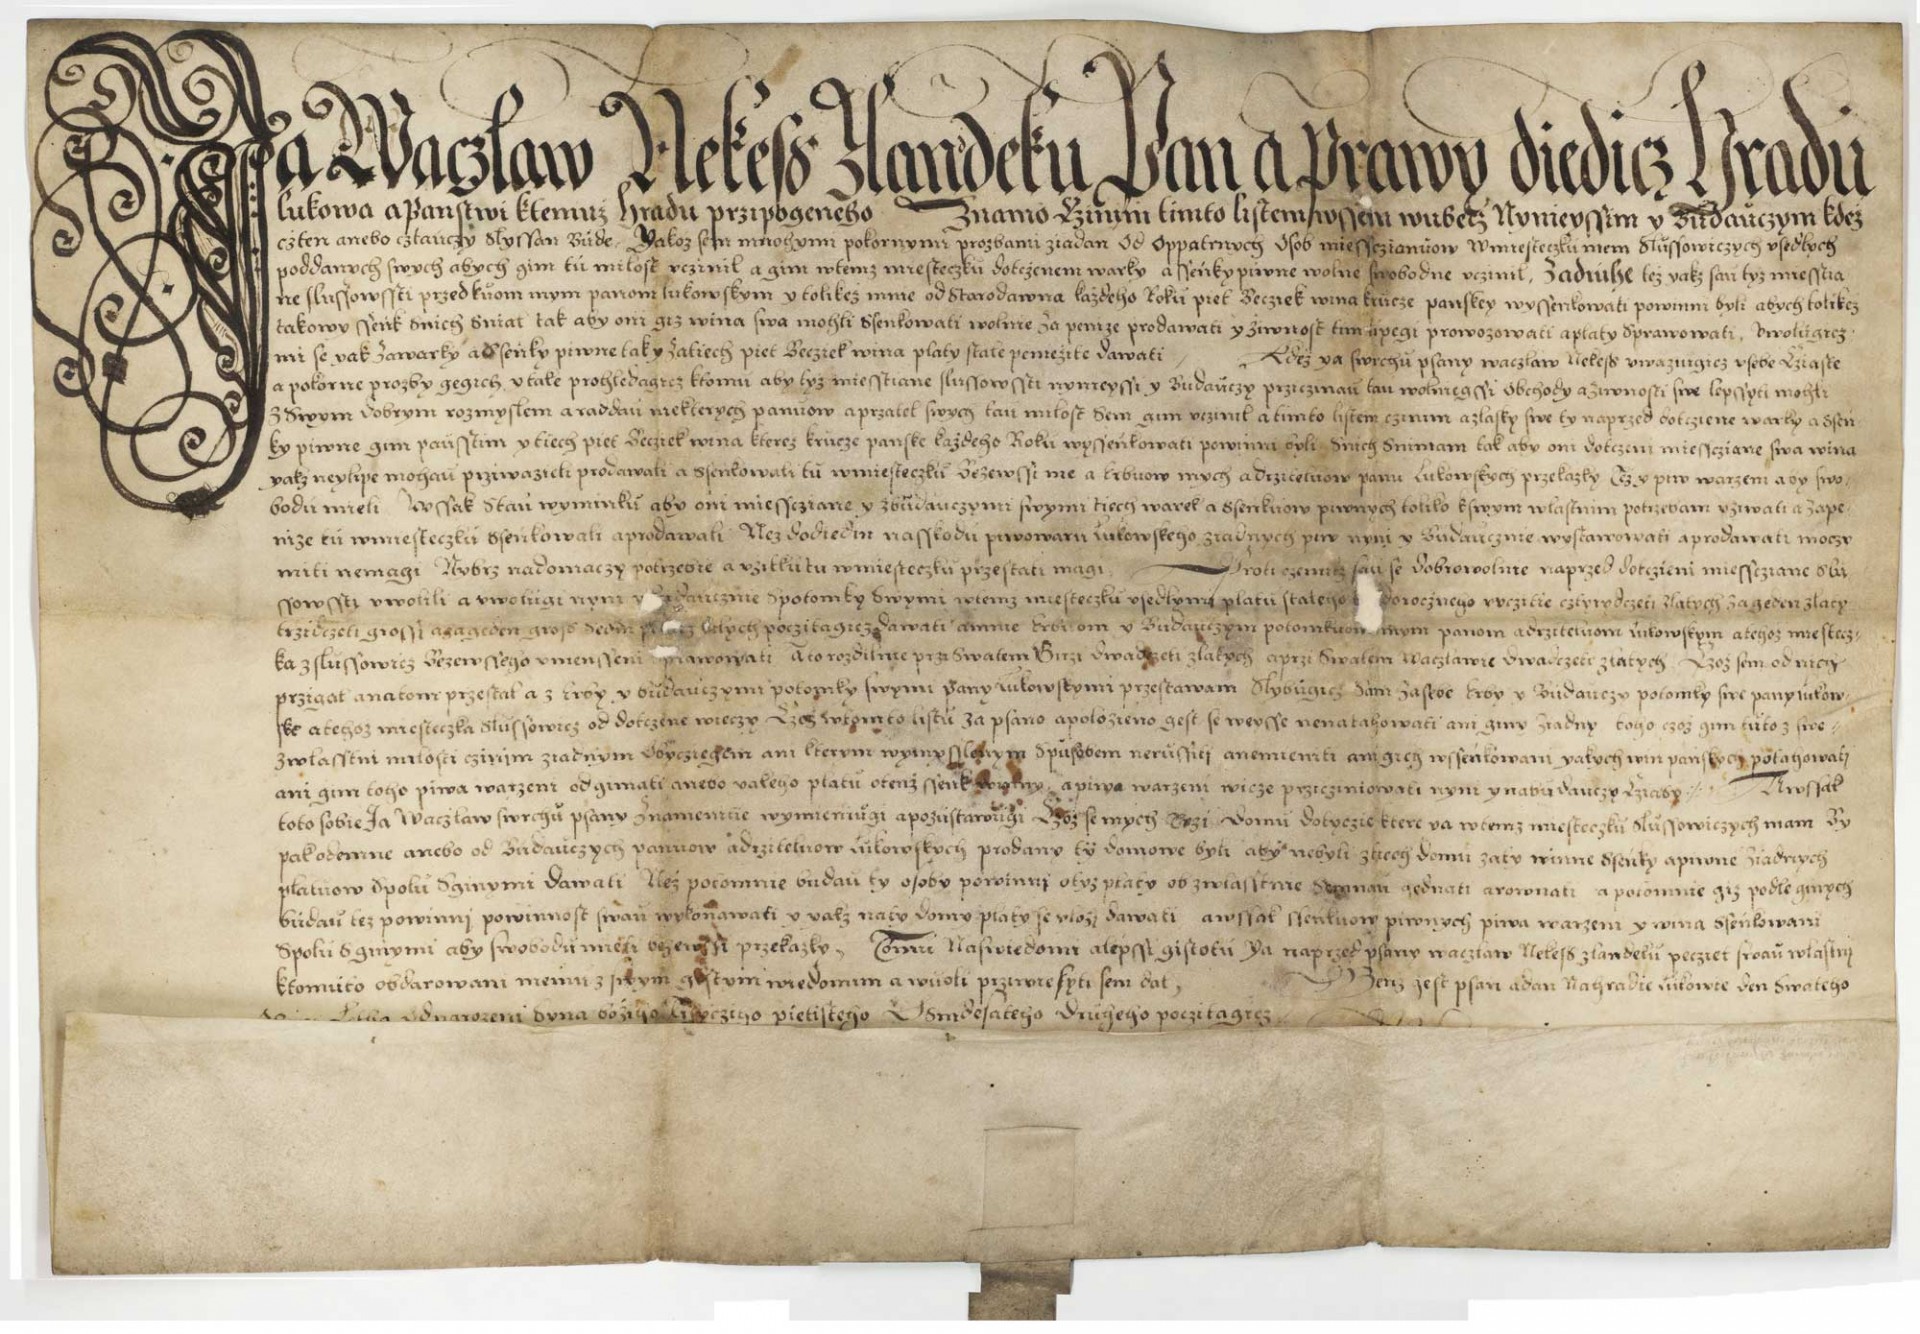 Ja Waczlaw Nekess Zlandeku Pan a Prawy diedicz Hradu
lukowa a Panstwi ktemuz hradu przipogeneho Znamo Cżinim timto listem wssem wubecz Nyniegssim y Budauczym kdez
czten anebo cztauczy slyssan Bude. Yakoz sem mnohymi pokornymi prozbami ziadan od Oppatrnych Osob miessczianuow wmiesteczku mem Slussowiczych usedlych
poddanych swych abych gim tu milost uczinil a gim wtemz miesteczku dotczenem warky a ssenky piwne wolne swobodne uczinil, Zadruhe tez yakz sau tyz miesstia
ne slussowssti przedkuom mym panom lukowskym y tolikez mnie od Starodawna kazdeho Roku piet Becziek wina krucze panskey wyssenkowati powinni byli abych tolikez
takowy ssenk Snich Sniat tak aby oni giz wina swa mohli Ssenkowati wolnie Za penize prodawati y ziwnost tim lipegi prowozowati a platy Sprawowati, Uwolugicz
mi se yak Zawarky a Ssenky piwne tak y Zatiech piet Becziek wina platy stale peniezite dawati Kdez ya swrchu psany waczlaw Nekess uwazugicz usebe Cziaste
a pokorne prozby gegich, y take prohledagicz ktomu aby tyz miesstiane slussowssti nyniegssi y Budauczy prziczinau tau wolniegssi Obchody a Ziwnosti swe lepssyti mohli
Z Swym dobrym rozmyslem a raddau niekterych panuow a przatel swych tau milost Sem gim uczinil a timto listem czinim a zlasky swe ty naprzed dotcziene warky a ssen
ky piwne gim paustim y tiech piet Becziek wina kterez krucze panske kazdeho Roku wyssenkowati powinni byli Snich Snimam tak aby oni dotczeni miessciane swa wina
yakz neylipe mohau przwazieti prodawati a Ssenkowati tu wmiesteczku Bezewssi me a Erbuow mych a drziteluow panu Lukowskych przekazky Tez y piw warzeni aby swo
bodu mieli Wssak Stau wyminku aby oni miessciane y Zbudauczymi swymi tiech warek a ssenkuow piwnych toliko kswym wlastnim potrzebam uziwati a Zape
nize tu wmiesteczku Ssenkowali a prodawali Nez dodiedin nasskodu piwowaru Lukowskeho ziadnych piw nyni y Budaucznie wystawowati a prodawati moczy
miti nemagi Nybrz nadomaczy potrzebie a uzitku tu wmiesteczku przestati magi. Proti czemuz sau se dobrowolnie naprzed dotczieni miessciane slu
ssowssti uwolili a uwolugi nyni y Budaucznie Spotomky Swymi wtemz miesteczku usedlymi platu staleho dorocznego uroczitie cztyrdczeti zlatych Za geden zlaty
trzidczeti grossi a zageden gross Sedm bilych poczitagicz dawati a mnie Erbuom y Budauczym potomkuom mym panom a drziteluom lukowskym a tehoz miestecz
ka Zslussowicz Bezewsseho umensseni Sprawowati A to rozdilnie przi Swatem Girzi dwadczeti zlatych a przi Swatem waczlawie dwadczeti zlatych. Czoz sem od nich
przigal a natom przestal a z Erby y budauczymi potomky swymi Pany lukowskymi przestawam Slybugicz Sam Zasebe Erby y Budauczy potomky swe pany lukow
ske a tehoz miesteczka Slussowicz od dotczene wieczy Czoz wtomto listu Za psano a polozieno gest se weysse nenatahowati ani giny ziadny toho czoz gim tuto z swe
zwlasstni milosti czinim ziadnym obyczegem ani kterym wymysslenym Spusobem nerussiti a nemieniti ani gich wssenkowani yakych win panskych potahowati
ani gim toho piwa warzeni odgimati anebo yakeho platu otenz ssenk winny a piwa warzeni wicze przicziniowati nyni y nabudauczy Cziasy. A wssak
toto sobie Ja Waczlaw swrchu psany Znamenitie wymieniugi a pozustawugi Czoz se mych Trzi Domu dotycze ktere ya wtemz miesteczku Slussowiczych mam By
pak odemne anebo od Budauczych panuow a drziteluow Lukowskych prodany ty domowe byli aby nebyli ztiech domu zaty winne Ssenky a piwne ziadnych
platuow Spolu Sginymi dawati Nez potomnie budau ty osoby powinni otyz platy obzwlasstnie Semnau gednati a rownati a potomnie giz podle ginych
budau tez powinni powinnost swau wykonawati y yakz naty domy platy se ulozi dawati a wssak ssenkuow piwnych piwa warzeni y wina Ssenkowani
Spolu Sginymi aby swobodu mieli bezewssi przekazky. Tomu Naswiedomi a lepssi gistotu Ya naprzed psany waczlaw Nekess zlandeku peczet swau wlastni
ktomuto obdarowani memu z swym gistym wiedomim a wuoli przwiesyti sem dal, Genz gest psan a dan Nahradie Lukowie den Swateho
Letha odnarozeni Syna bozyho Tisyczyho pietisteho Osmdesateho Druheho poczitagicz